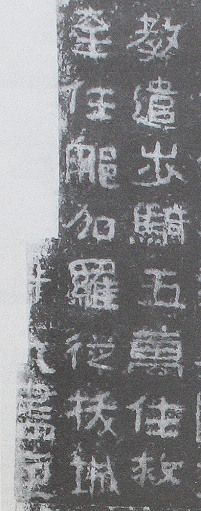 教遣步騎五萬住救
至任那加羅從拔城